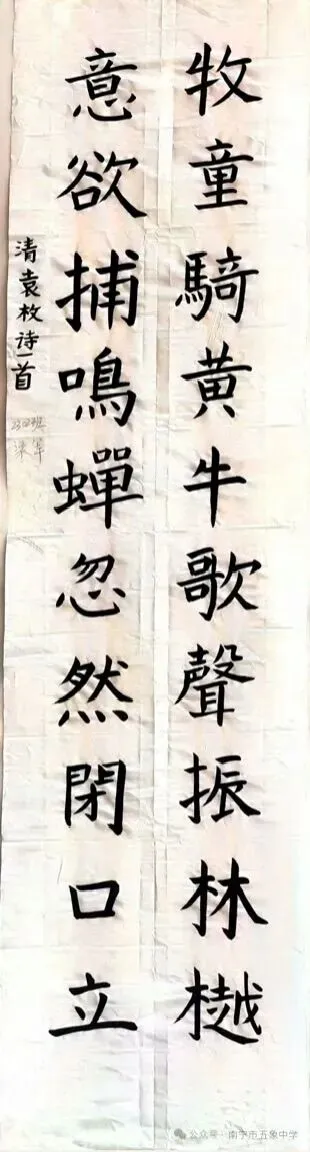 牧童騎黄牛歌聲振林樾
意欲捕鳴蟬忽然閉口立
清袁枚诗一首
公众号·南宁市五象中学